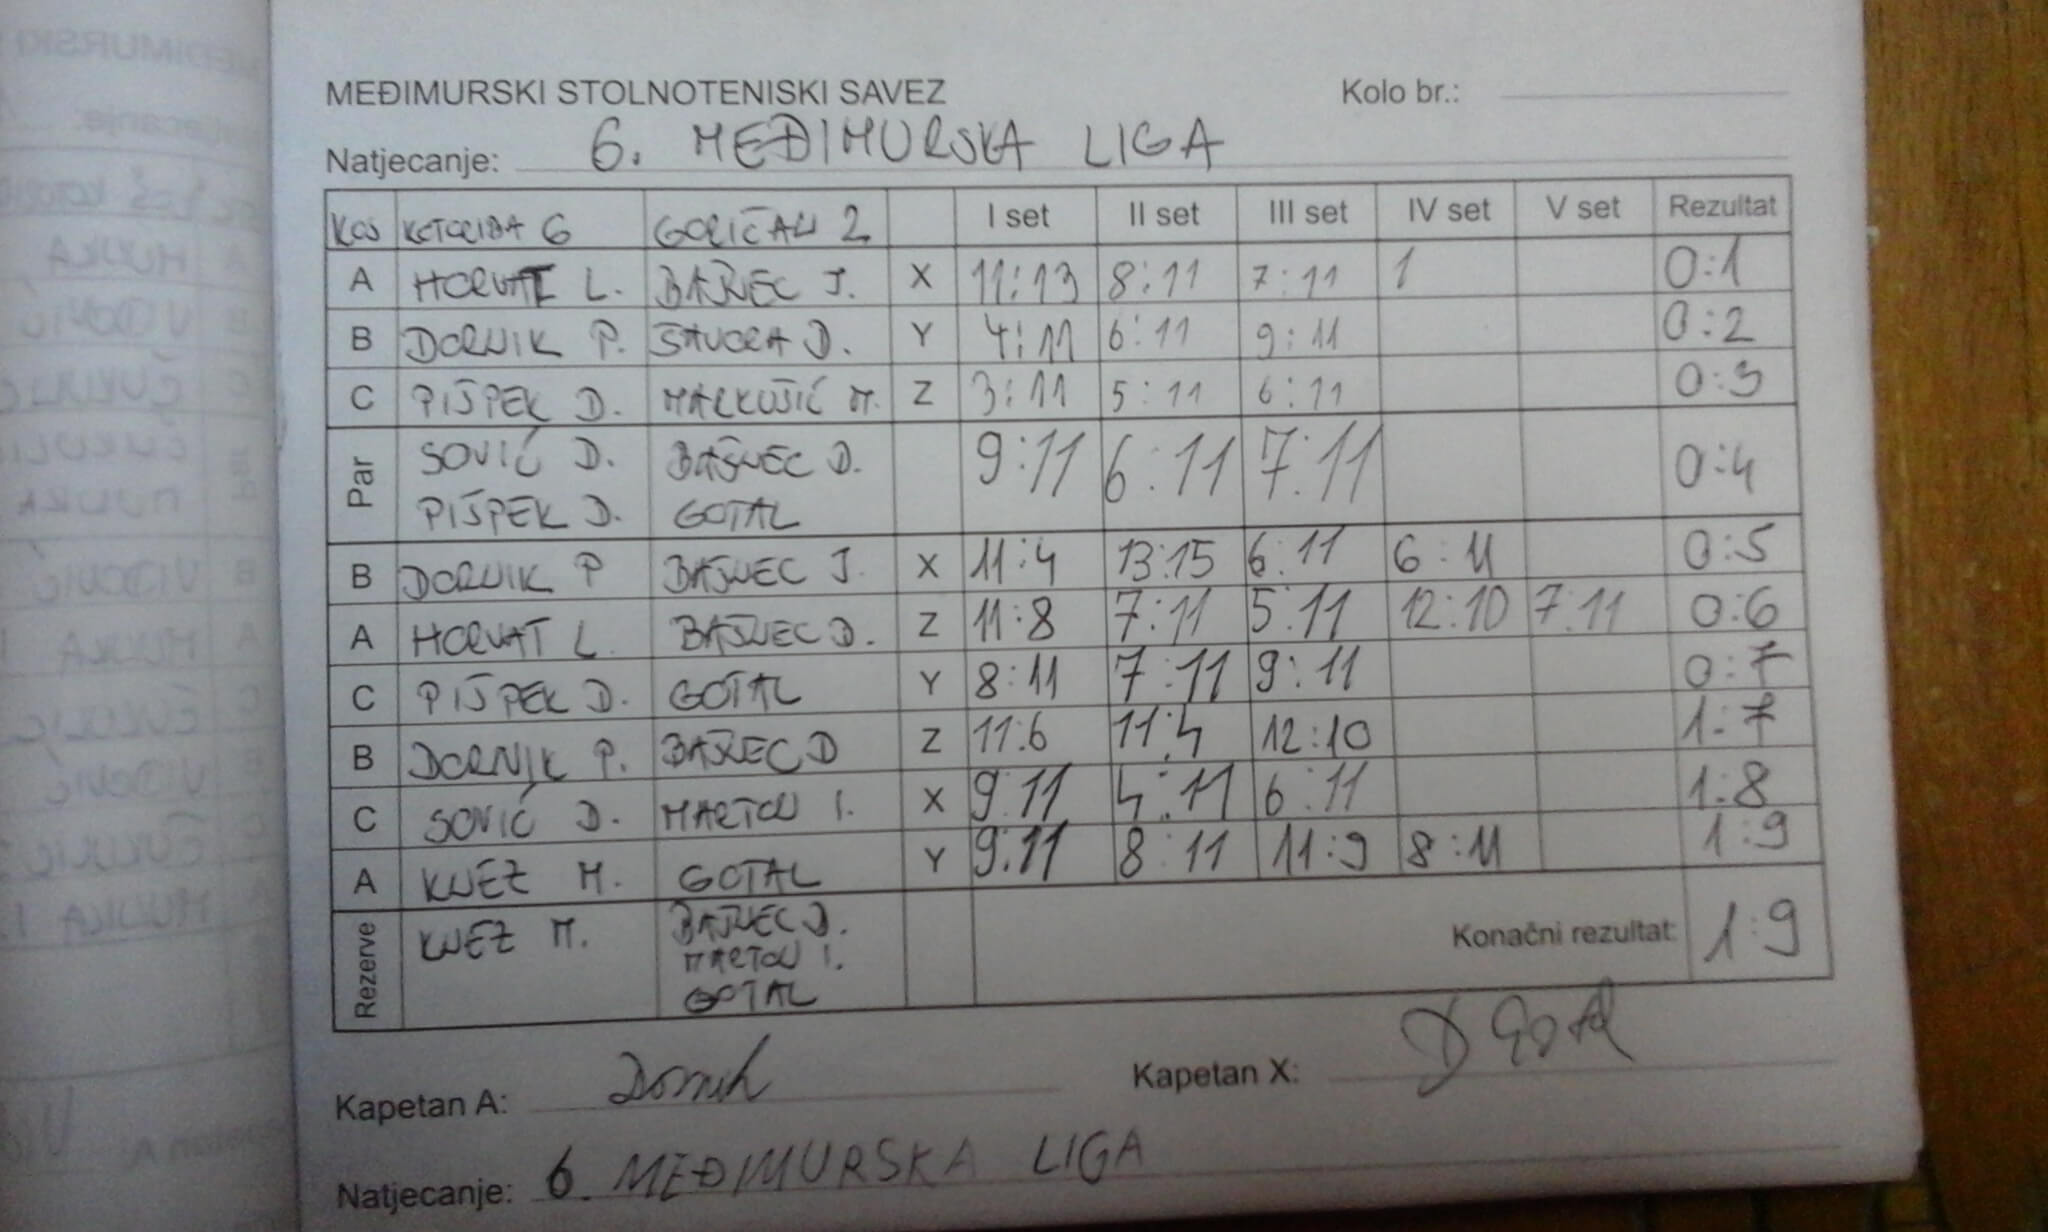 MEĐIMURSKI STOLNOTENISKI SAVEZ Kolo br.:
Natjecanje: 6. MEĐIMURSKA LIGA
KOTORIBA 6 GORIČAN 2 I set II set III set IV set V set Rezultat
A HORVAT L. BAŠNEC J. X 11:13 8:11 7:11 1 0:1
B DORNIK P. ŠAVORA D. Y 4:11 6:11 9:11 0:2
C PIŠPEK D. MARKUŠIĆ M. Z 3:11 5:11 6:11 0:3
Par SOVIĆ D. BAŠNEC D. 9:11 6:11 7:11 0:4
PIŠPEK D. GOTAL
B DORNIK P BAŠNEC J. X 11:4 13:15 6:11 6:11 0:5
A HORVAT L. BAŠNEC D. Z 11:8 7:11 5:11 12:10 7:11 0:6
C PIŠPEK D. GOTAL Y 8:11 7:11 9:11 0:7
B DORNIK P. BAŠNEC D Z 11:6 11:4 12:10 1:7
C SOVIĆ D. MARTON I. X 9:11 4:11 6:11 1:8
A KNEZ M. GOTAL Y 9:11 8:11 11:9 8:11 1:9
Rezerve KNEZ M. BAŠNEC D. Konačni rezultat: 1:9
MARTON I.
GOTAL
Kapetan A: Dornik Kapetan X: D Gotal
Natjecanje: 6. MEĐIMURSKA LIGA